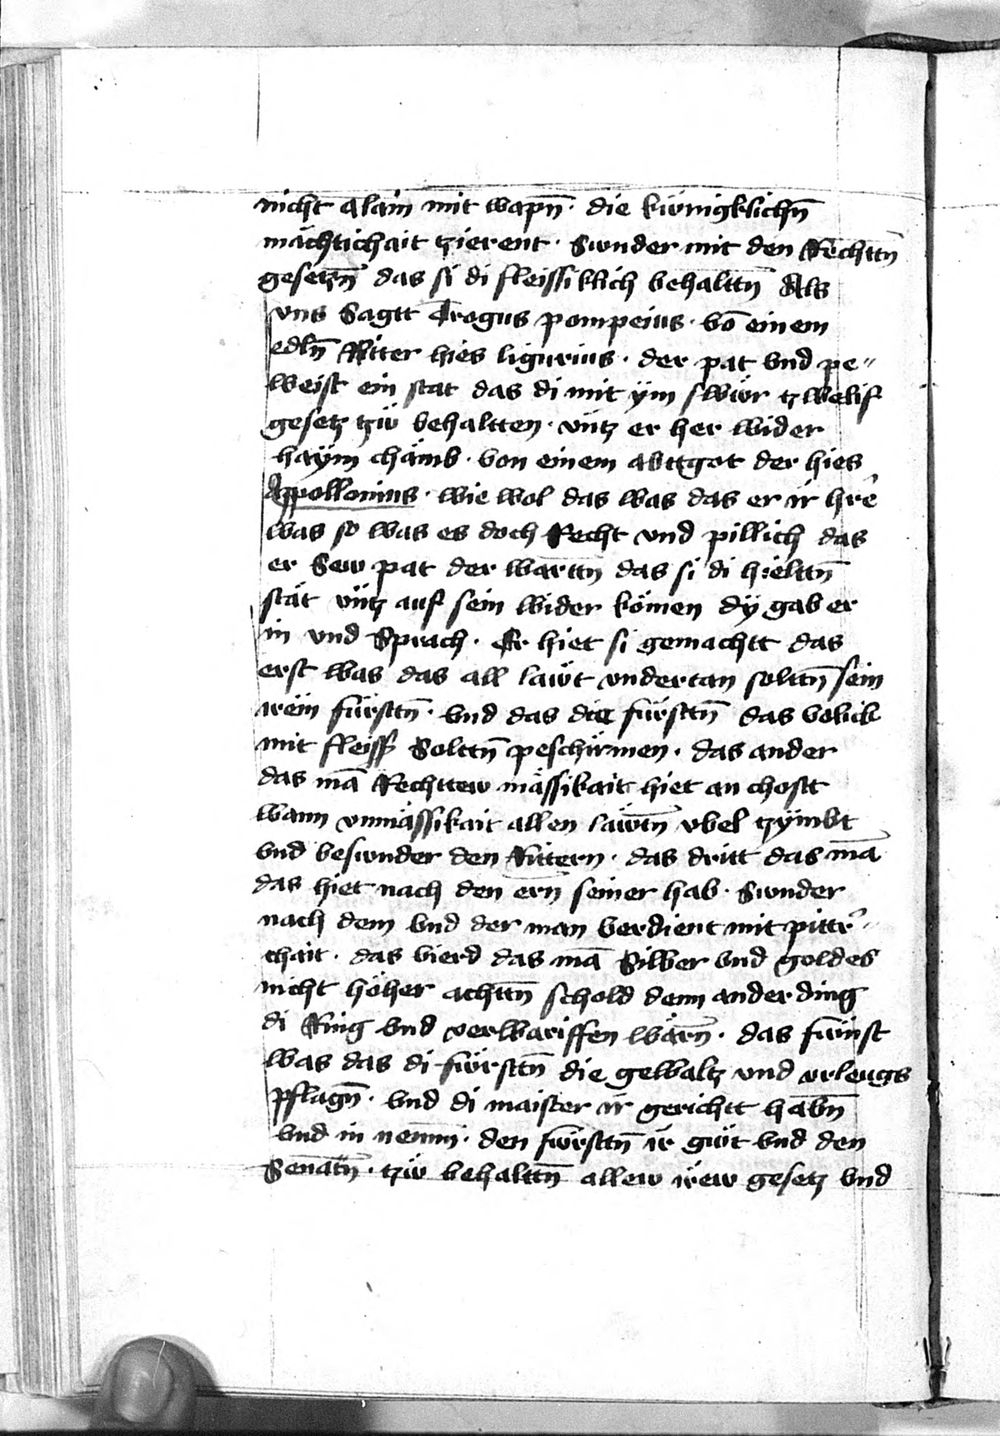 nicht alain mit wapn̄ · die kúnigklichn̄
mächtichait tzierent · Sunder mit den Rechttn̄
gesetzn̄ das si di fleissiklich behalttn̄ Als
vns Sagtt Trogus pompeius · vō einem
edln̄ Ritter hies ligurius · der pat vnd pe〃
weist ein stat das di mit ÿm swúr tzwelif
gesetz tzú behaltten · vntz er her wider
haÿm chämb · von einem abttgot der hies
Appollonius · wie wol das was das er ir hrē
was so was es doch Recht vnd pillich das
er Sew pat der warttn̄ das si di hielttn̄
stät vntz auf sein wider kömen dÿ gab er
in vnd Sprach · Er hiet si gemachtt das
erst was das all láwt vndertan solttn̄ sein
irëm fürsttn̄ · vnd das die fürsttn̄ das volick
mit fleiss Solttn̄ peschirmen · das ander
das mā Rechttew mässikait hiet an chostt
wann vnmässikait allen láwtn̄ vbel tzÿmbt
vnd besunder den Rittern · das dritt das mā
das hiet nach den ern̄ seiner hab · Sunder
nach dem vnd der man verdient mit pittr̄〃
chait · das vierd das mā Silber vnd goldes
nicht höher achttn̄ schold denn ander ding
di Ring vnd verwariffen wärn̄ · das fúnfst
was das di fúrsttn̄ die gewaltz vnd vrleugs
pflagn̄ · vnd di maister ir gerichtt habn̄
vnd in nemm̄ · den fúrsttn̄ ir gút vnd den
Senātn̄ · tzú behalttn̄ allew irew gesetz vnd